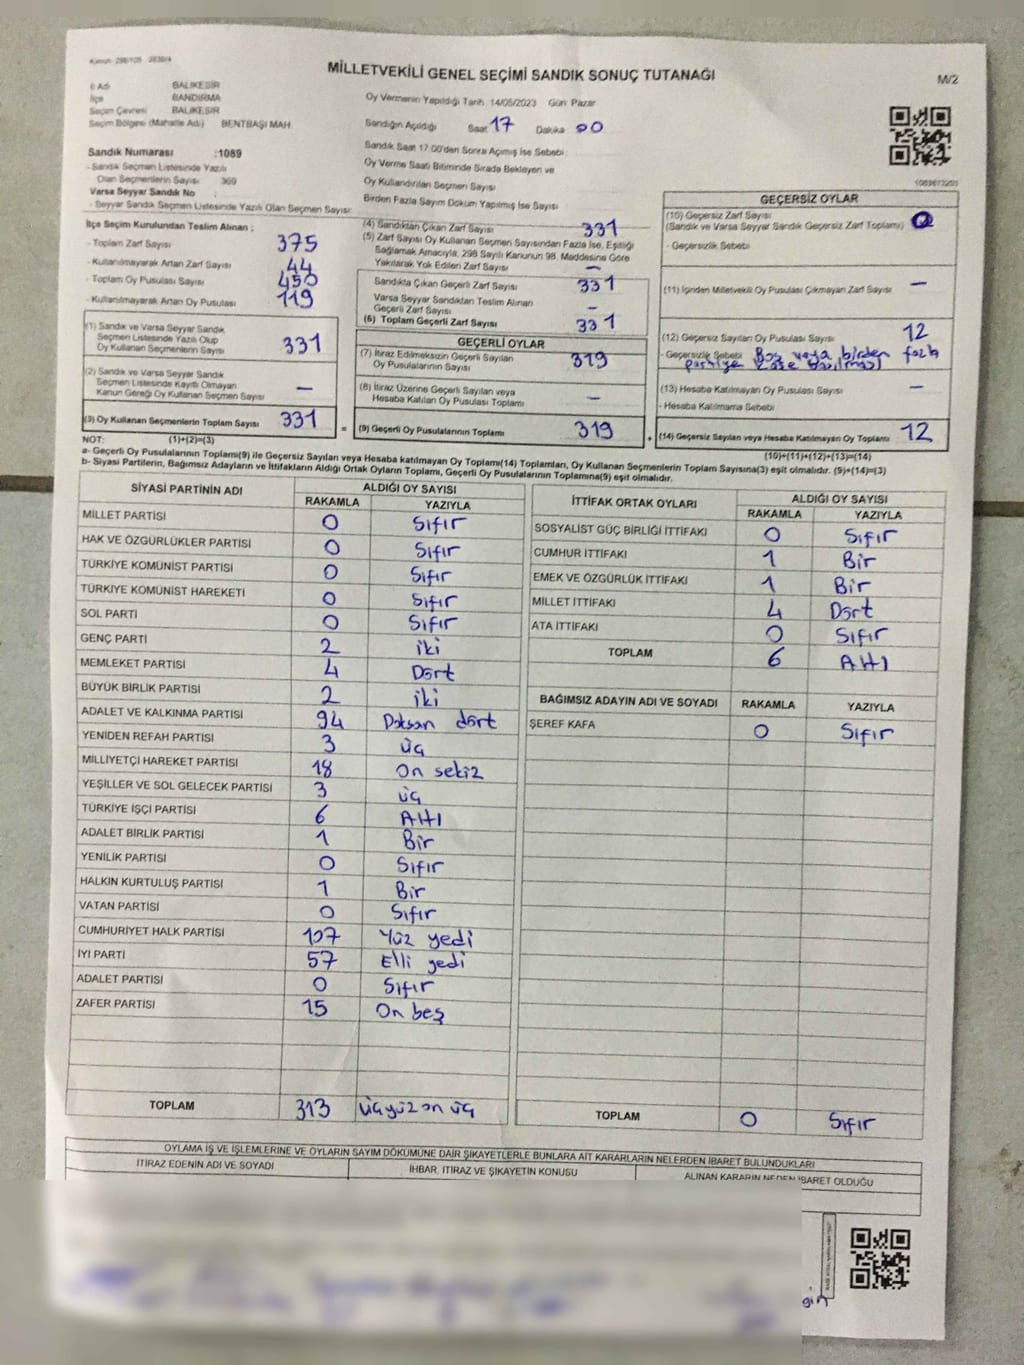 MİLLETVEKİLİ GENEL SEÇİMİ SANDIK SONUÇ TUTANAĞI
M/2
İl Adı BALIKESİR
İlçe BANDIRMA
Seçim Çevresi BALIKESİR
Seçim Bölgesi (Mahalle Adı) BENTBAŞI MAH.
Sandık Numarası :1089
- Sandık Seçmen Listesinde Yazılı
Olan Seçmenlerin Sayısı 369
Varsa Seyyar Sandık No :
- Seyyar Sandık Seçmen Listesinde Yazılı Olan Seçmen Sayısı:
Oy Vermenin Yapıldığı Tarih :14/05/2023 Gün: Pazar
Sandığın Açıldığı Saat 17 Dakika 00
Sandık Saat 17:00'den Sonra Açılmış İse Sebebi :
Oy Verme Saati Bitiminde Sırada Bekleyen ve
Oy Kullandırılan Seçmen Sayısı
Birden Fazla Sayım Döküm Yapılmış İse Sayısı
İlçe Seçim Kurulundan Teslim Alınan ;
- Toplam Zarf Sayısı 375
- Kullanılmayarak Artan Zarf Sayısı 44
- Toplam Oy Pusulası Sayısı 450
- Kullanılmayarak Artan Oy Pusulası 119
(1) Sandık ve Varsa Seyyar Sandık
Seçmen Listesinde Yazılı Olup
Oy Kullanan Seçmenlerin Sayısı 331
(2) Sandık ve Varsa Seyyar Sandık
Seçmen Listesinde Kayıtlı Olmayan
Kanun Gereği Oy Kullanan Seçmen Sayısı —
(3) Oy Kullanan Seçmenlerin Toplam Sayısı 331
(4) Sandıktan Çıkan Zarf Sayısı 331
(5) Zarf Sayısı Oy Kullanan Seçmen Sayısından Fazla İse, Eşitliği
Sağlamak Amacıyla, 298 Sayılı Kanunun 98. Maddesine Göre
Yakılarak Yok Edilen Zarf Sayısı —
Sandıkta Çıkan Geçerli Zarf Sayısı 331
Varsa Seyyar Sandıktan Teslim Alınan
Geçerli Zarf Sayısı —
(6) Toplam Geçerli Zarf Sayısı 331
GEÇERLİ OYLAR
(7) İtiraz Edilmeksizin Geçerli Sayılan
Oy Pusulalarının Sayısı 319
(8) İtiraz Üzerine Geçerli Sayılan veya
Hesaba Katılan Oy Pusulası Toplamı —
= (9) Geçerli Oy Pusulalarının Toplamı 319
GEÇERSİZ OYLAR
(10) Geçersiz Zarf Sayısı
(Sandık ve Varsa Seyyar Sandık Geçersiz Zarf Toplamı)
- Geçersizlik Sebebi
(11) İçinden Milletvekili Oy Pusulası Çıkmayan Zarf Sayısı —
(12) Geçersiz Sayılan Oy Pusulası Sayısı 12
- Geçersizlik Sebebi Boş veya birden fazla
partiye kaşe basılması
(13) Hesaba Katılmayan Oy Pusulası Sayısı —
- Hesaba Katılmama Sebebi
+ (14) Geçersiz Sayılan veya Hesaba Katılmayan Oy Toplamı 12
NOT: (1)+(2)=(3) (10)+(11)+(12)+(13)=(14)
a- Geçerli Oy Pusulalarının Toplamı(9) ile Geçersiz Sayılan veya Hesaba katılmayan Oy Toplamı(14) Toplamları, Oy Kullanan Seçmenlerin Toplam Sayısına(3) eşit olmalıdır. (9)+(14)=(3)
b- Siyasi Partilerin, Bağımsız Adayların ve İttifakların Aldığı Ortak Oyların Toplamı, Geçerli Oy Pusulalarının Toplamına(9) eşit olmalıdır.
SİYASİ PARTİNİN ADI ALDIĞI OY SAYISI
RAKAMLA YAZIYLA
MİLLET PARTİSİ 0 Sıfır
HAK VE ÖZGÜRLÜKLER PARTİSİ 0 Sıfır
TÜRKİYE KOMÜNİST PARTİSİ 0 Sıfır
TÜRKİYE KOMÜNİST HAREKETİ 0 Sıfır
SOL PARTİ 0 Sıfır
GENÇ PARTİ 2 iki
MEMLEKET PARTİSİ 4 Dört
BÜYÜK BİRLİK PARTİSİ 2 iki
ADALET VE KALKINMA PARTİSİ 94 Doksan dört
YENİDEN REFAH PARTİSİ 3 üç
MİLLİYETÇİ HAREKET PARTİSİ 18 On sekiz
YEŞİLLER VE SOL GELECEK PARTİSİ 3 üç
TÜRKİYE İŞÇİ PARTİSİ 6 Altı
ADALET BİRLİK PARTİSİ 1 Bir
YENİLİK PARTİSİ 0 Sıfır
HALKIN KURTULUŞ PARTİSİ 1 Bir
VATAN PARTİSİ 0 Sıfır
CUMHURİYET HALK PARTİSİ 107 Yüz yedi
İYİ PARTİ 57 Elli yedi
ADALET PARTİSİ 0 Sıfır
ZAFER PARTİSİ 15 On beş
TOPLAM 313 üçyüz on üç
İTTİFAK ORTAK OYLARI ALDIĞI OY SAYISI
RAKAMLA YAZIYLA
SOSYALİST GÜÇ BİRLİĞİ İTTİFAKI 0 Sıfır
CUMHUR İTTİFAKI 1 Bir
EMEK VE ÖZGÜRLÜK İTTİFAKI 1 Bir
MİLLET İTTİFAKI 4 Dört
ATA İTTİFAKI 0 Sıfır
TOPLAM 6 Altı
BAĞIMSIZ ADAYIN ADI VE SOYADI RAKAMLA YAZIYLA
ŞEREF KAFA 0 Sıfır
TOPLAM 0 Sıfır
OYLAMA İŞ VE İŞLEMLERİNE VE OYLARIN SAYIM DÖKÜMÜNE DAİR ŞİKAYETLERLE BUNLARA AİT KARARLARIN NELERDEN İBARET BULUNDUKLARI
İTİRAZ EDENİN ADI VE SOYADI İHBAR, İTİRAZ VE ŞİKAYETİN KONUSU ALINAN KARARIN NEDEN İBARET OLDUĞU